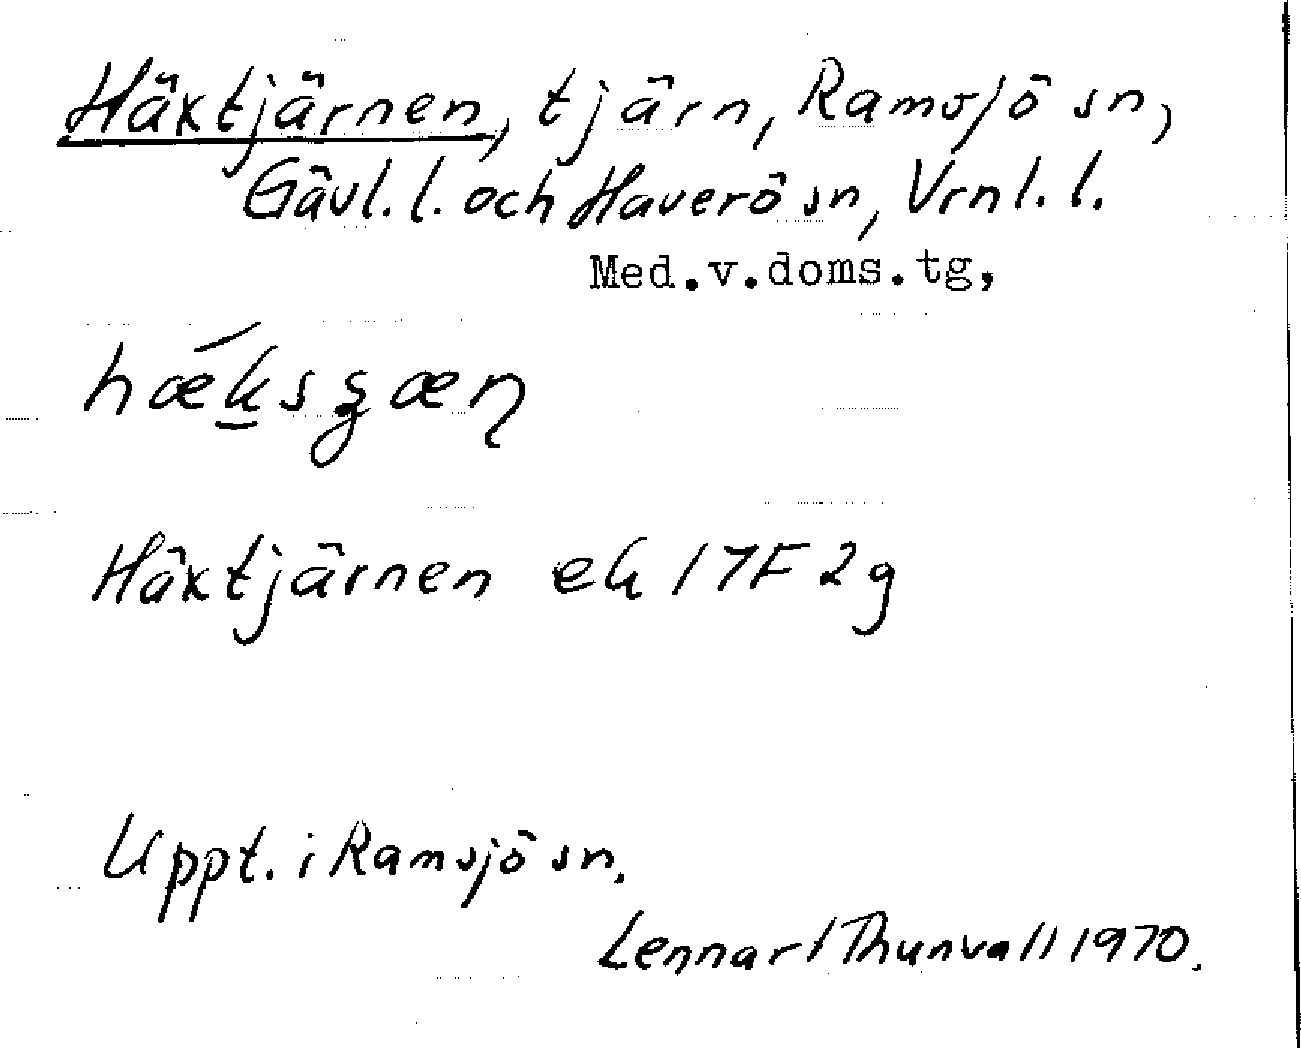 Häxtjärnen, tjärn, Ramsjö sn,
Gävl. l. och Haverö sn, Vrnl. l.
Med.v.doms.tg,
Häxtjärnen ek 17F 2g
Uppt. i Ramsjö sn.
Lennart Thunvall 1970.